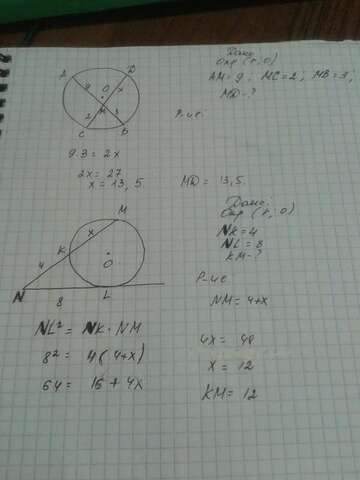 Дано:
Окр (r; O)
AM = 9; MC = 2; MB = 3;
MD - ?
A
D
9
O
x
M
2
3
C
B
Р-ие:
9·3 = 2x
2x = 27
x = 13,5.
MD = 13,5.
Дано:
Окр (r; O)
NK = 4
NL = 8
KM - ?
M
x
K
4
O
N
8
L
Р-ие
NM = 4+x
NL² = NK · NM
8² = 4(4+x)
64 = 16 + 4x
4x = 48
x = 12
KM = 12